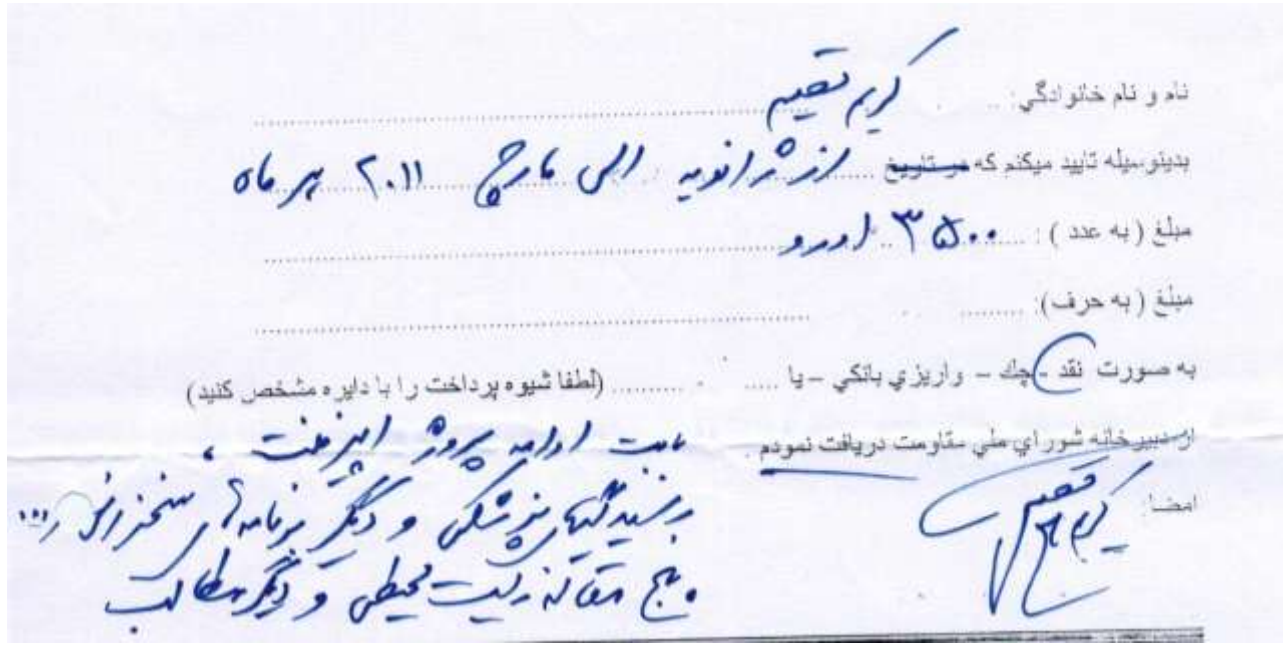 نام و نام خانوادگي: کریم قصیم
بدينوسيله تاييد ميكنم كه در تاريخ از ژانویه الی مارچ ۲۰۱۱ هر ماه
مبلغ ( به عدد ) : ۳۵۰۰ اورو
مبلغ ( به حرف):
به صورت نقد - چك - واريزي بانكي - يا ..... (لطفا شيوه پرداخت را با دايره مشخص كنيد)
از دبيرخانه شوراي ملي مقاومت دريافت نمودم .
بابت ادامه پروژه ،
رسیدگیهای پزشکی و دیگر برنامه های سخنرانی ...
امضا: کریم قصیم
و پنج مقاله زیست محیطی و دیگر مطالب